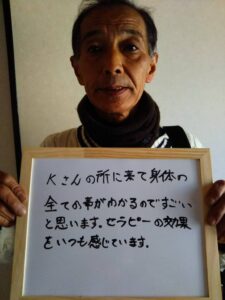 Kさんの所に来て身体の
全ての事がわかるのですごい
と思います。セラピーの効果
をいつも感じています。